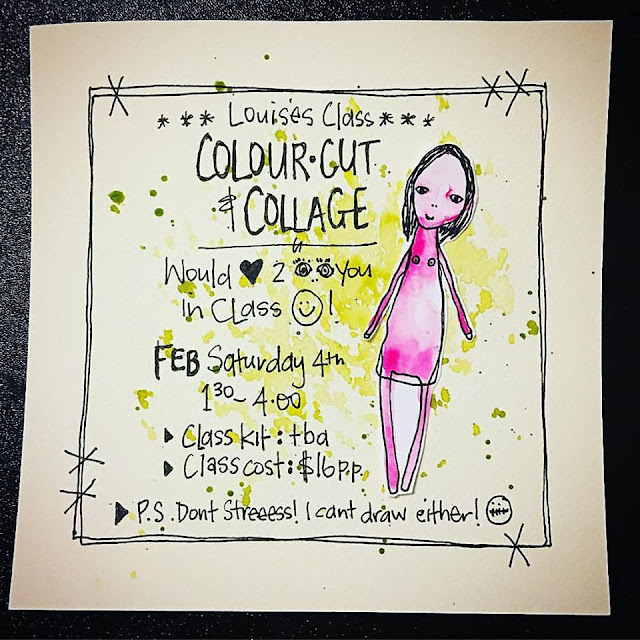 *** Louise's Class ***
COLOUR·CUT
& COLLAGE
Would ♥ 2 👀 you
In Class ☺!
FEB Saturday 4th
1³⁰ – 4.00
▶ Class kit: tba
▶ Class cost: $16 p.p.
▶ P.S. Dont Streeess! I cant draw either!